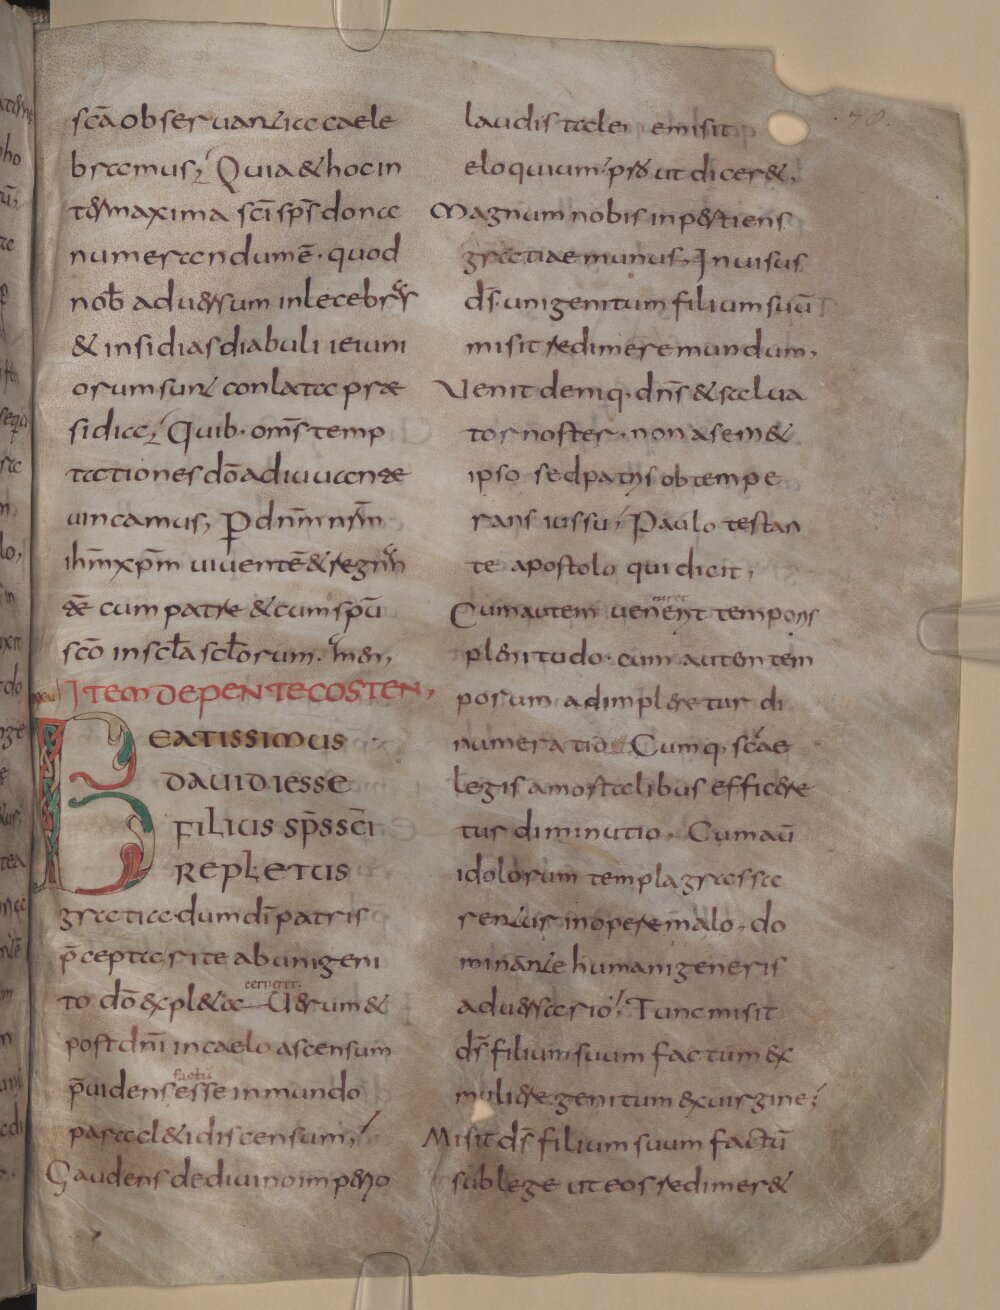 scā observantia caele
bramus; Quia & hoc in
ter maxima sc̄i sp̄s dona
numerandum ē. quod
nob̄ adversum inlecebras
& insidias diabuli ieiuni
orum sunt conlata præ
sidia; Quib· om̄s temp
tationes dō adiuvante
vincamus; P dn̄m nr̄m
ih̄m xp̄m viventē & regnan
tē cum patre & cum spū
scō in scl̄a scl̄orum. amen;
ITEM DE PENTECOSTEN;
BEATISSIMUS
DAVID IESSE
FILIUS SP̄S SC̄I
REPLETUS
gratia· dum dī patris
p̄cepta rite ab unigeni
cerneret·
to dō expleta Verum &
post dn̄i in caelo ascensum
factū
p̄videns esse in mundo
paracleti discensum;
Gaudens de divino imperio
·78·
laudis talei emisit
eloquium· pro ut diceret;
Magnum nobis inpertiens
gratiae munus; Invisus
ds̄· unigenitum filium suū
misit redimere mundum;
Venit demq· dn̄s & salva
tor noster· non a sem&
ipso sed patris obtempe
rans iussu; Paulo testan
te apostolo qui dicit;
Cum autem venerit temporis
plenitudo· cum autem tem
porum adimpleretur di
numeratio Cumq scāe
legis a mortalibus effice re
tur diminutio· Cum aū
idolorum templa grassa
rentur in opere malo· do
minante humani generis
adversario; Tunc misit
ds̄ filium suum factum ex
muliere genitum ex virgine;
Misit ds̄ filium suum factū
sub lege ut eos redimer&